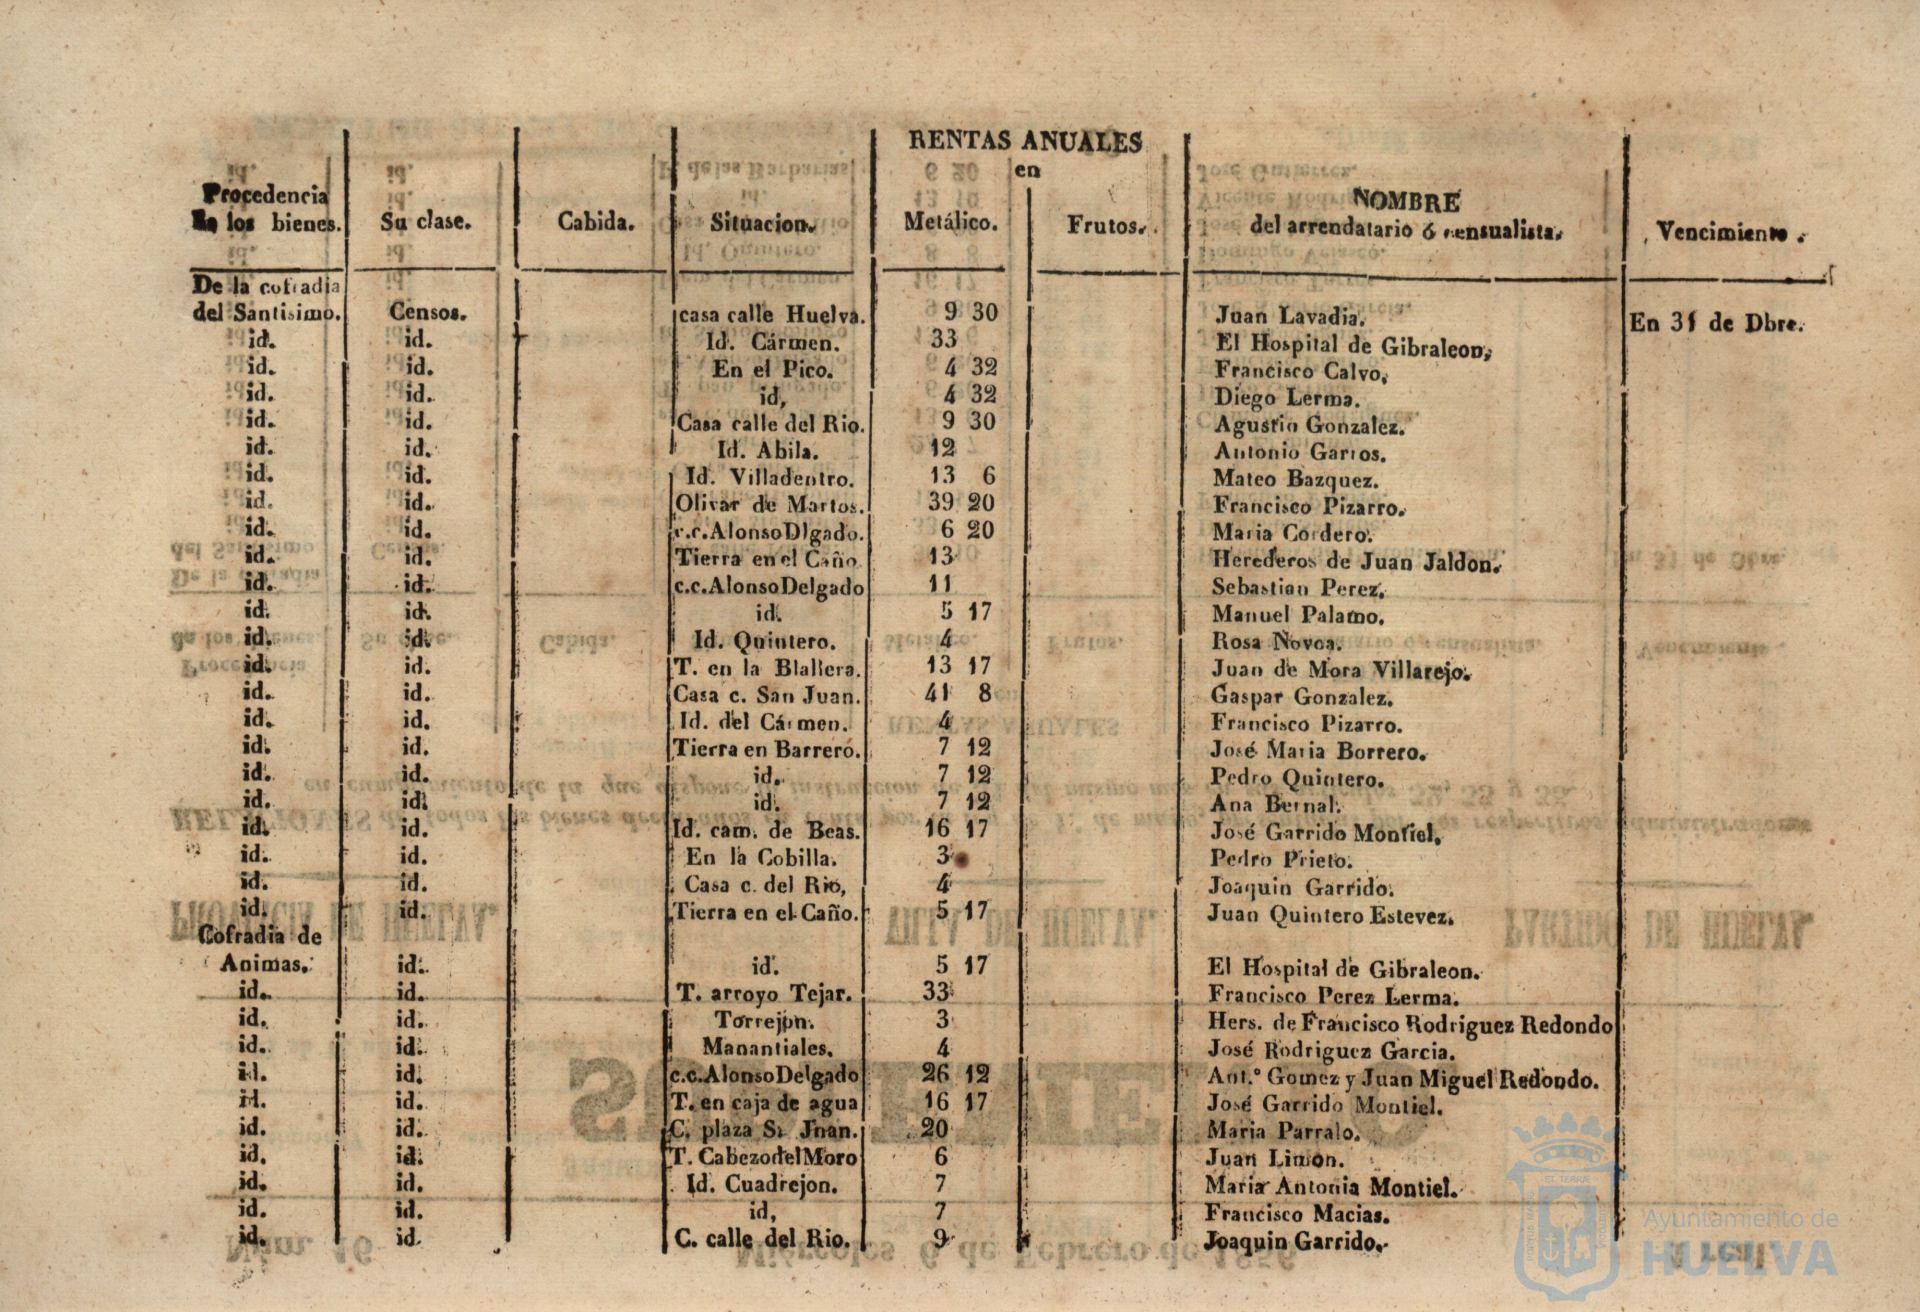 RENTAS ANUALES
en
Procedencia de los bienes. Su clase. Cabida. Situacion. Metálico. Frutos. NOMBRE del arrendatario ó censualista. Vencimiento.
De la cofradia
del Santisimo. Censos. casa calle Huelva. 9 30 Juan Lavadia. En 31 de Dbre.
id. id. Id. Cármen. 33 El Hospital de Gibraleon,
id. id. En el Pico. 4 32 Francisco Calvo,
id. id. id, 4 32 Diego Lerma.
id. id. Casa calle del Rio. 9 30 Agustin Gonzalez.
id. id. Id. Abila. 12 Antonio Garros.
id. id. Id. Villadentro. 13 6 Mateo Bazquez.
id. id. Olivar de Martos. 39 20 Francisco Pizarro.
id. id. c.c.Alonso Dlgado. 6 20 Maria Cordero.
id. id. Tierra en el Caño 13 Herederos de Juan Jaldon.
id. id. c.c.Alonso Delgado 11 Sebastian Perez.
id. id. id. 5 17 Manuel Palamo.
id. id. Id. Quintero. 4 Rosa Novoa.
id. id. T. en la Blallera. 13 17 Juan de Mora Villarejo.
id. id. Casa c. San Juan. 41 8 Gaspar Gonzalez.
id. id. Id. del Cármen. 4 Francisco Pizarro.
id. id. Tierra en Barrero. 7 12 José Maria Borrero.
id. id. id. 7 12 Pedro Quintero.
id. id. id. 7 12 Ana Bernal.
id. id. Id. cam. de Beas. 16 17 José Garrido Montiel.
id. id. En la Cobilla. 3 Pedro Prieto.
id. id. Casa c. del Rio, 4 Joaquin Garrido.
id. id. Tierra en el Caño. 5 17 Juan Quintero Estevez.
Cofradia de
Animas. id. id. 5 17 El Hospital de Gibraleon.
id. id. T. arroyo Tejar. 33 Francisco Perez Lerma.
id. id. Torrejon. 3 Hers. de Francisco Rodriguez Redondo
id. id. Manantiales. 4 José Rodriguez Garcia.
id. id. c.c.Alonso Delgado 26 12 Ant.º Gomez y Juan Miguel Redondo.
id. id. T. en caja de agua 16 17 José Garrido Montiel.
id. id. C. plaza S. Jnan. 20 Maria Parralo.
id. id. T. Cabezo del Moro 6 Juan Limon.
id. id. Id. Cuadrejon. 7 Maria Antonia Montiel.
id. id. id, 7 Francisco Macias.
id. id. C. calle del Rio. 9 Joaquin Garrido.
Ayuntamiento de
HUELVA